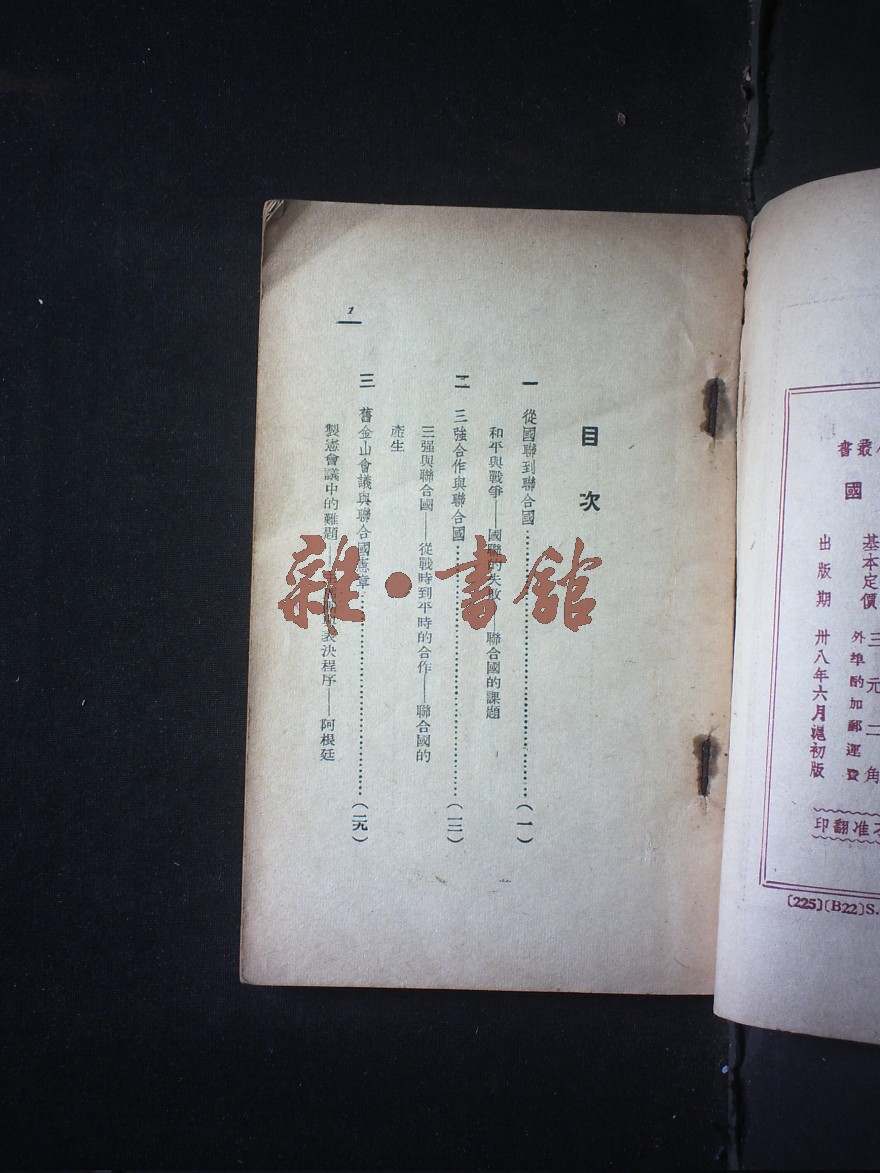 叢書
國
基本定價 三元二角
外埠酌加郵運費
出版期 卅八年六月滬初版
不准翻印
〔225〕(B22)S.
目次
一 從國聯到聯合國……(一)
和平與戰爭——國聯的失敗——聯合國的課題
二 三強合作與聯合國……(一三)
三强與聯合國——從戰時到平時的合作——聯合國的
產生
三 舊金山會議與聯合國憲章……(二九)
製憲會議中的難題——表決程序——阿根廷
1
雜·書館